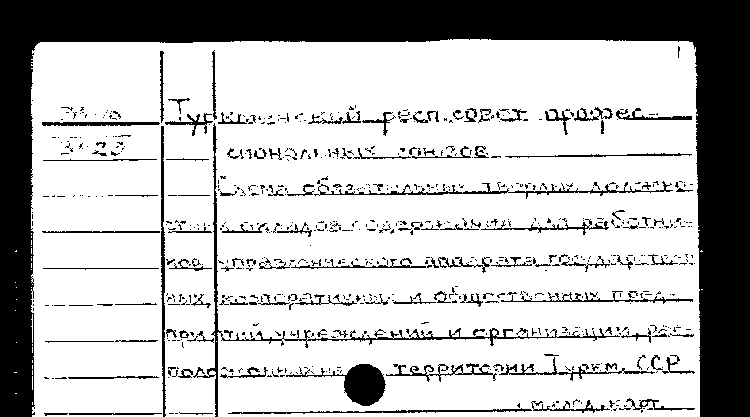 Туркменский респ. совет профес-
сиональных союзов.
Схема обязательных твердых должно-
стных окладов содержания для работни-
ков управленческого аппарата государствен
ных, кооперативных и общественных пред-
приятий, учреждений и организации, рас-
положенных на территории Туркм. ССР
см. след. карт.